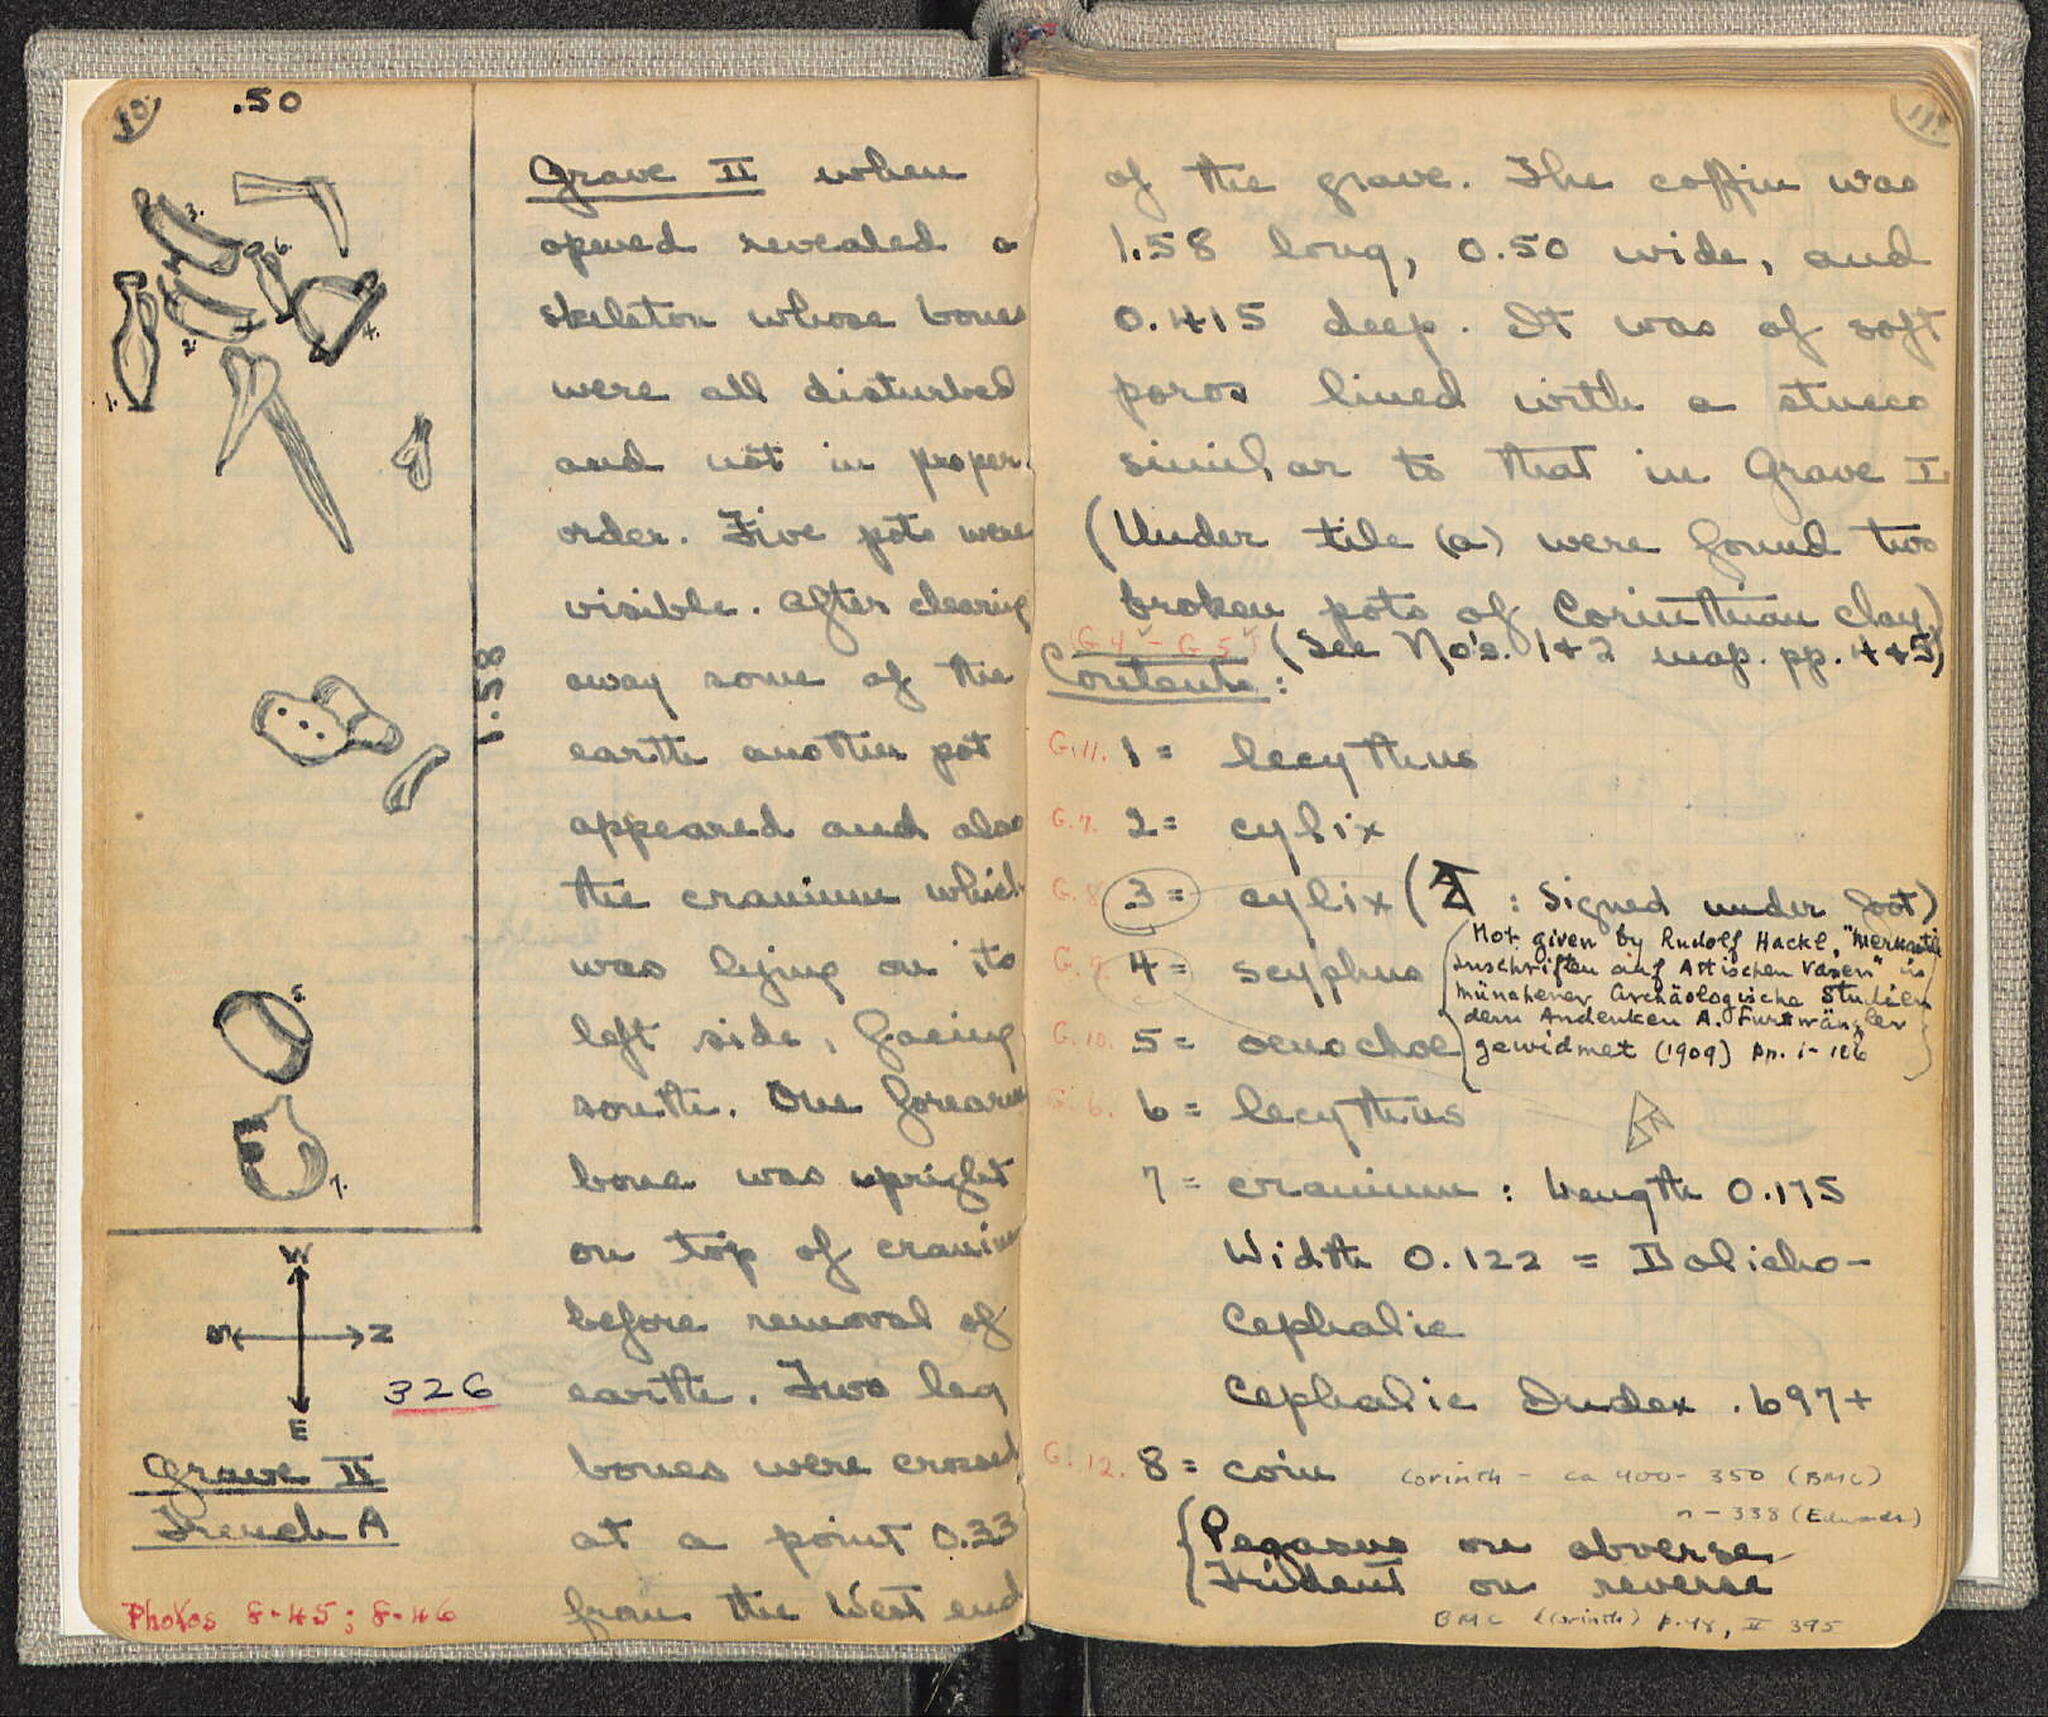 10.
.50
3.
6.
4.
2.
1.
1.58
5.
7.
W
N
E
326
Grave II
Trench A
Photos 8-45; 8-46
Grave II when
opened revealed a
skeleton whose bones
were all disturbed
and not in proper
order. Five pots were
visible. After clearing
away some of the
earth another pot
appeared and also
the cranium which
was lying on its
left side, facing
south. One forearm
bone was upright
on top of cranium
before removal of
earth. Two leg
bones were crossed
at a point 0.33
from the West end
11.
of the grave. The coffin was
1.58 long, 0.50 wide, and
0.415 deep. It was of soft
poros lined with a stucco
similar to that in Grave I
(Under tile (a) were found two
broken pots of Corinthian clay)
G 4 - G 5 (See No's. 1+2 map. pp. 4+5)
Contents:
G.11. 1 = lecythus
G.7. 2 = cylix
G.8. 3 = cylix ( : Signed under foot)
Not given by Rudolf Hackl, "Merkantile
Inschriften auf Attischen Vasen" in
Münchener Archäologische Studien
dem Andenken A. Furtwängler
gewidmet (1909) pp. 1-106
G.9. 4 = scyphus
G.10. 5 = oenochoe
G.6. 6 = lecythus
7 = cranium : Length 0.175
Width 0.122 = Dolicho-
Cephalic
Cephalic Index .697+
G.12. 8 = coin Corinth - ca 400-350 (BMC)
" - 338 (Edwards)
Pegasus on obverse
Trident on reverse
BMC (Corinth) p. 48, II 395